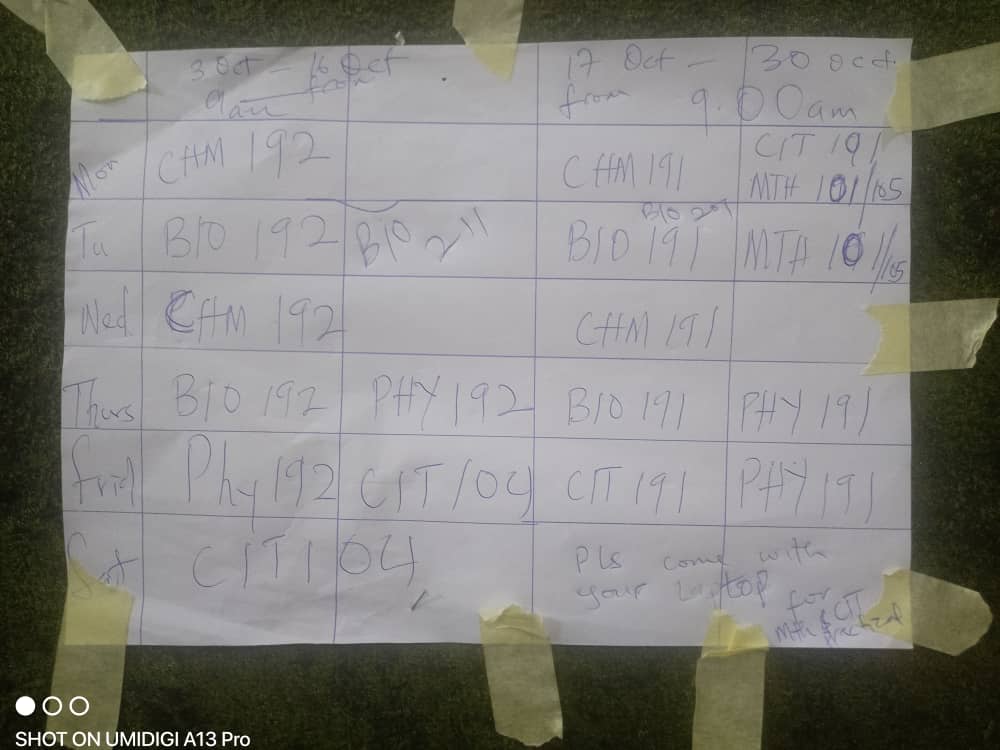 3 Oct - 16 Oct
from
9am
17 Oct - 30 Oct.
from 9.00am
Mon CHM 192 CHM 191 CIT 191
MTH 101/105
BIO 201
Tu BIO 192 BIO 211 BIO 191 MTH 101/105
Wed CHM 192 CHM 191
Thurs BIO 192 PHY 192 BIO 191 PHY 191
Frid Phy 192 CIT 104 CIT 191 PHY 191
Sat CIT 104
Pls come with
your laptop for
Mth & CIT
practical
SHOT ON UMIDIGI A13 Pro